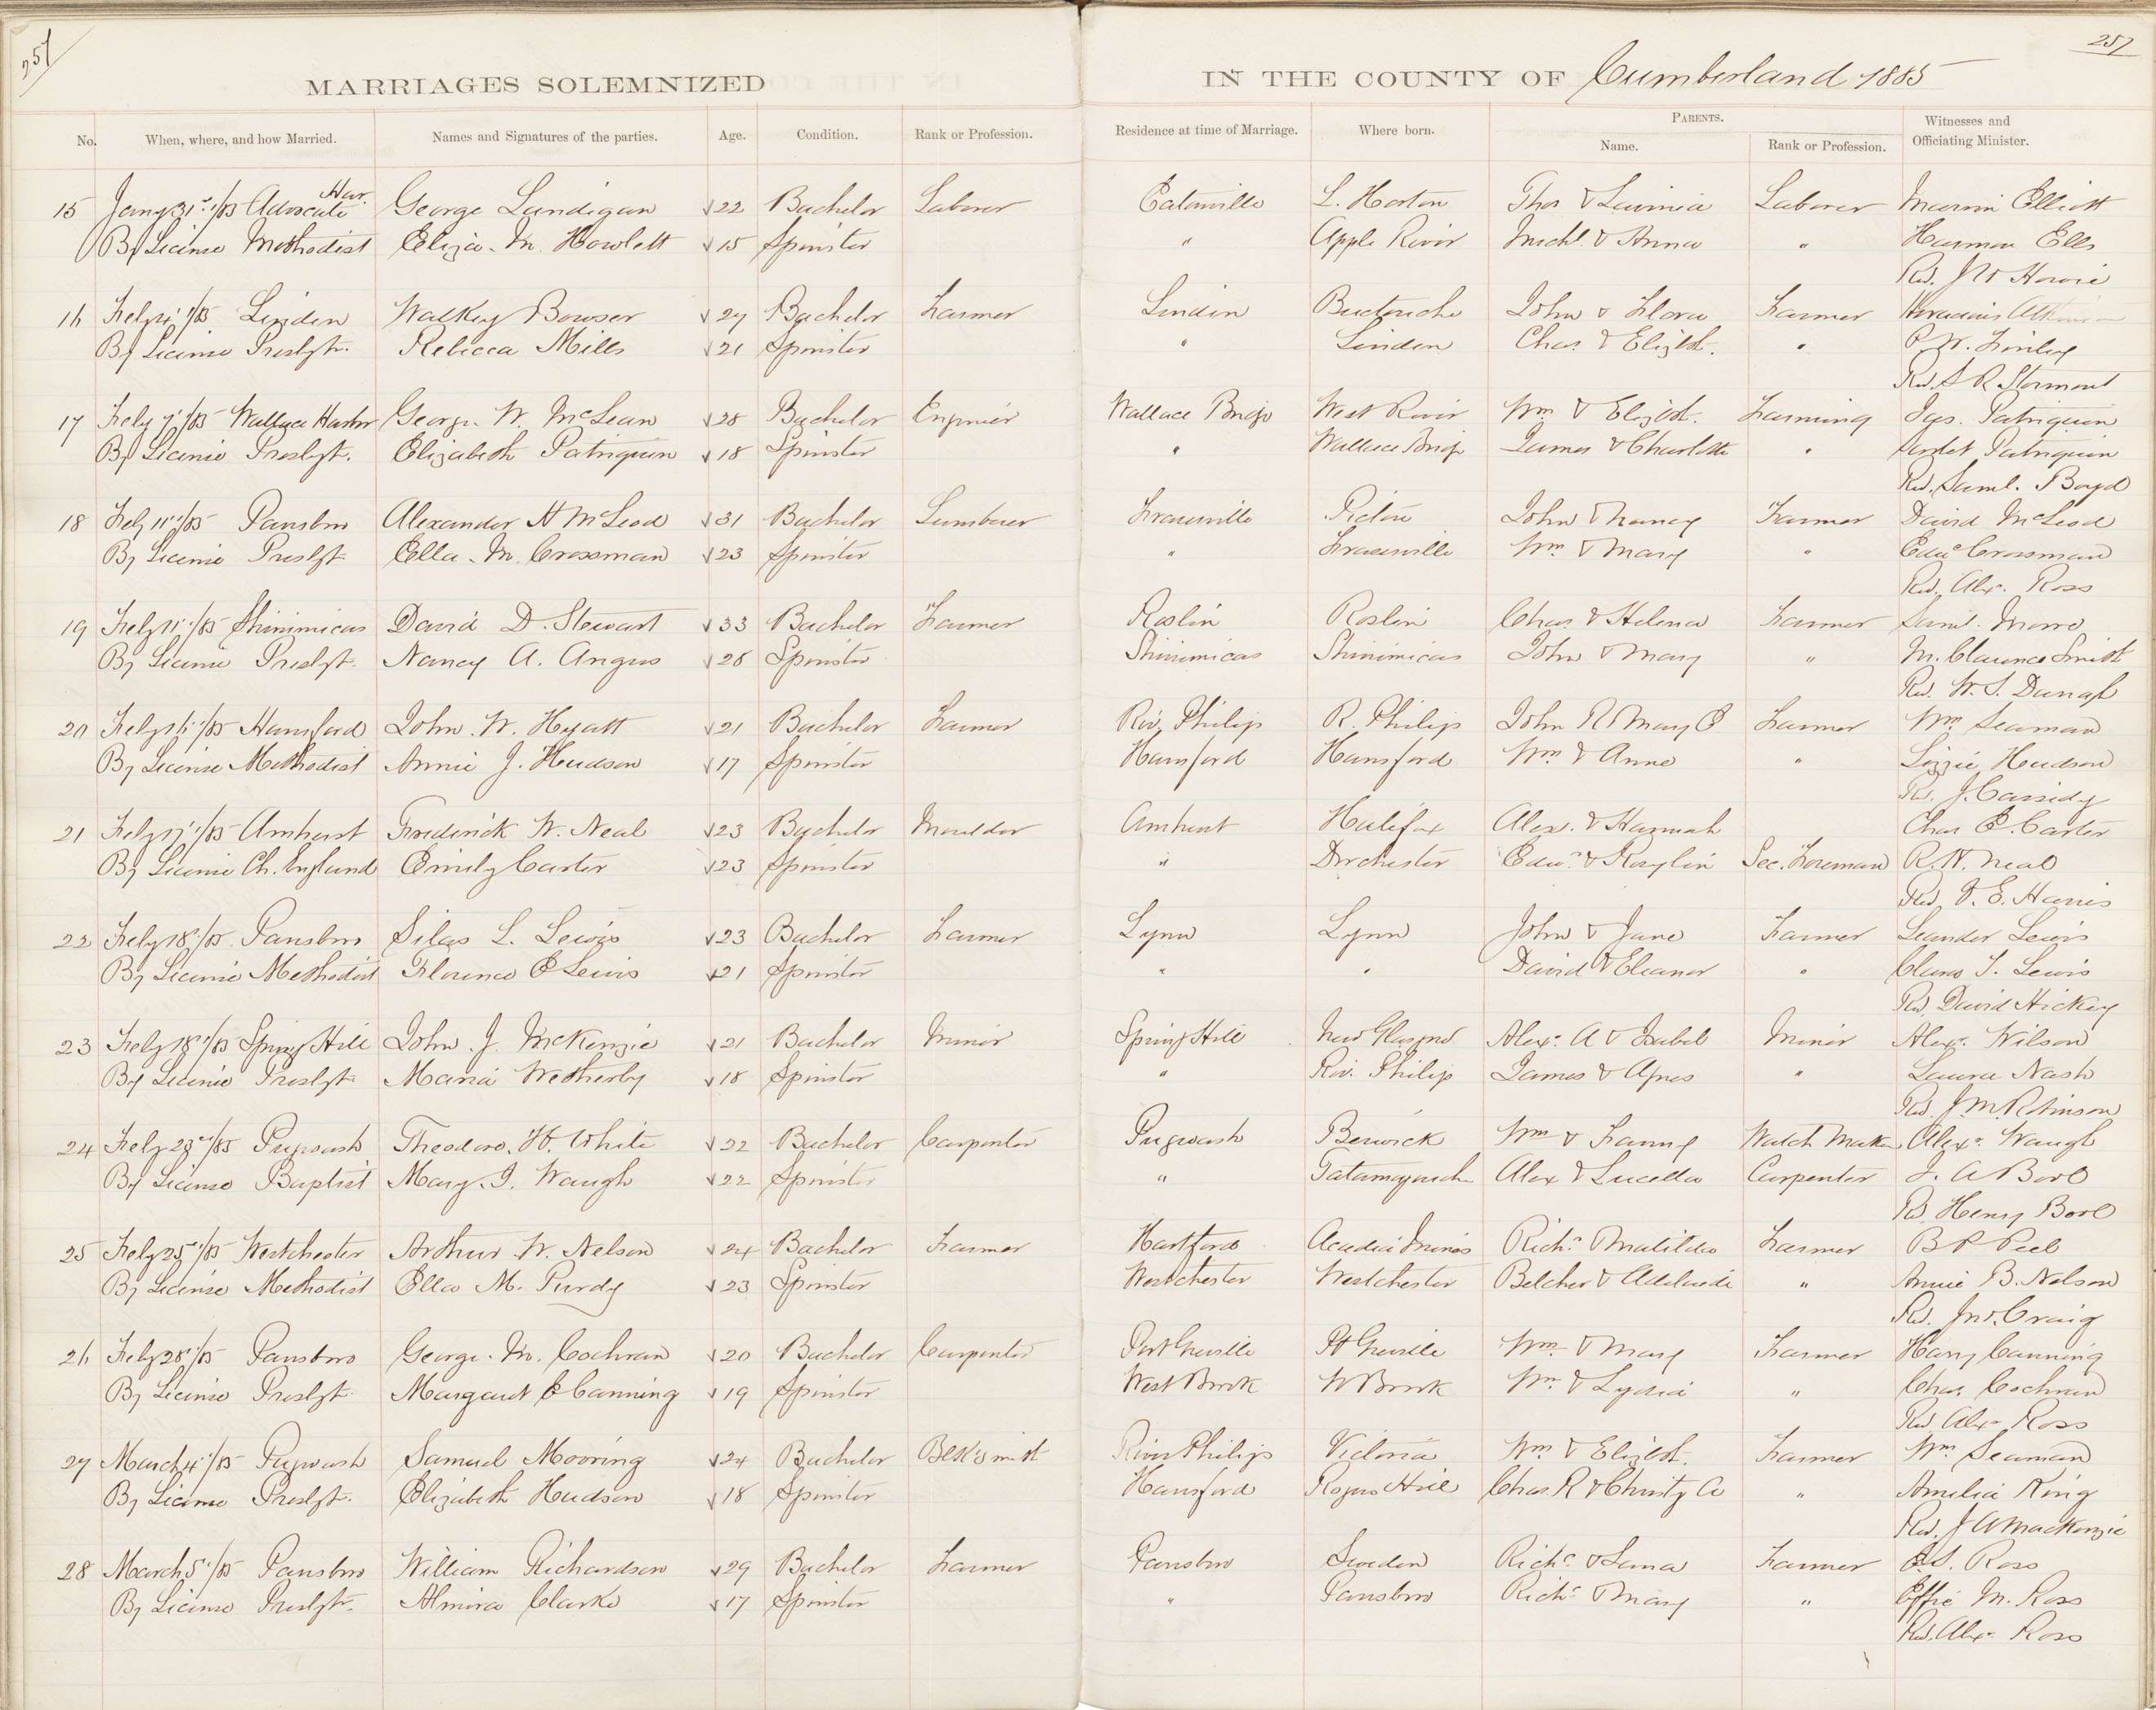 257
257
MARRIAGES SOLEMNIZED
IN THE COUNTY OF Cumberland 1885
No. When, where, and how Married. Names and Signatures of the parties. Age. Condition. Rank or Profession. Residence at time of Marriage. Where born. PARENTS. Name. Rank or Profession. Witnesses and Officiating Minister.
15 Jany 31st/85 Advocate Har. George Lundigan 22 Bachelor Laborer Eatonville L. Horton Thos & Lavinia Laborer Marvin Elliott
By License Methodist Eliza. M. Howlett 15 Spinster " Apple River Michl. & Anna " Harmon Ells
Rev. J W Howie
16 Feby 4th/85 Linden Bowser 27 Bachelor Farmer Linden Buctouche John & Flora Farmer
By License Presbyt. Rebecca Mills 21 Spinster " Linden Chas. & Elizbth. " P. W. Finley
Rev. S R Stormont
17 Feby 7th/85 Wallace Harbor George. W. McLean 28 Bachelor Engineer Wallace Bridge West River Wm & Elizbth. Farming Jas. Patriquin
By License Presbyt. Elizabeth Patriquin 18 Spinster " Wallace Bridge James & Charlotte " Patriquin
Rev. Saml. Boyd
18 Feby 11th/85 Parrsboro Alexander H McLeod 31 Bachelor Lumberer Fraserville Pictou John & Nancy Farmer David McLeod
By License Presbyt Ella. M. Crossman 23 Spinster " Fraserville Wm & Mary " Edwd Crossman
Rev. Alexr. Ross
19 Feby 11th/85 Shinimicas David D. Stewart 33 Bachelor Farmer Roslin Roslin Chas & Helena Farmer Saml. Morro
By License Presbyt. Nancy A. Angus 28 Spinster Shinimicas Shinimicas John & Mary " M. Clarence Smith
Rev. W. S. Darragh
20 Feby 16th/85 Hansford John. W. Hyatt 21 Bachelor Farmer Riv. Philip R. Philip John R & Mary E Farmer Wm Seaman
By License Methodist Annie J. Hudson 17 Spinster Hansford Hansford Wm & Anne " Lizzie Hudson
Rev. J. Cassidy
21 Feby 17th/85 Amherst Frederick W. Neal 23 Bachelor Moulder Amherst Halifax Alex. & Hannah Chas E. Carter
By License Ch. England Emily Carter 23 Spinster " Dorchester Edwd & Roxylin Sec. Foreman R. W. Neal
Rev. V. E. Harris
22 Feby 18th/85 Parrsboro Silas L. Lewis 23 Bachelor Farmer Lynn Lynn John & Jane Farmer Leander Lewis
By License Methodist Florence E Lewis 21 Spinster " " David & Eleanor " Clara T. Lewis
Rev. David Hickey
23 Feby 18th/85 Spring Hill John. J. McKenzie 21 Bachelor Miner Spring Hill New Glasgow Alexr. A & Isabel Miner Alexr. Wilson
By License Presbyt Maria Wetherby 18 Spinster " Riv. Philip James & Agnes " Laura Nash
Rev. J M Robinson
24 Feby 23rd/85 Pugwash Theodore. H. White 22 Bachelor Carpenter Pugwash Berwick Wm & Fanny Watch Maker Alexr. Waugh
By License Baptist Mary. I. Waugh 22 Spinster " Tatamagouche Alex & Lucella Carpenter J. A Bool
Rev Henry Bool
25 Feby 25th/85 Westchester Arthur W. Nelson 24 Bachelor Farmer Hartford Acadia Mines Richd & Matilda Farmer B P Peel
By License Methodist Ella M. Purdy 23 Spinster Westchester Westchester Belcher & Adelaide " Annie B. Nelson
Rev. Jno. Craig
26 Feby 28th/85 Parrsboro George. M. Cochran 20 Bachelor Carpenter Port Greville Pt Greville Wm & Mary Farmer Harry Canning
By License Presbyt. Margaret E Canning 19 Spinster West Brook W Brook Wm & Lydia " Chas. Cochran
Rev. Alexr Ross
27 March 4th/85 Pugwash Samuel Mooring 24 Bachelor Blk'smith River Philip Victoria Wm & Elizbth. Farmer Wm Seaman
By License Presbyt. Elizabeth Hudson 18 Spinster Hansford Rogers Hill Chas. R & Christy A " Amelia King
Rev. J A MacKenzie
28 March 5th/85 Parrsboro William Richardson 29 Bachelor Farmer Parrsboro Sweden Richd & Lena Farmer Ross
By License Presbyt. Almira Clarke 17 Spinster " Parrsboro Richd & Mary " Effie M. Ross
Rev. Alexr. Ross